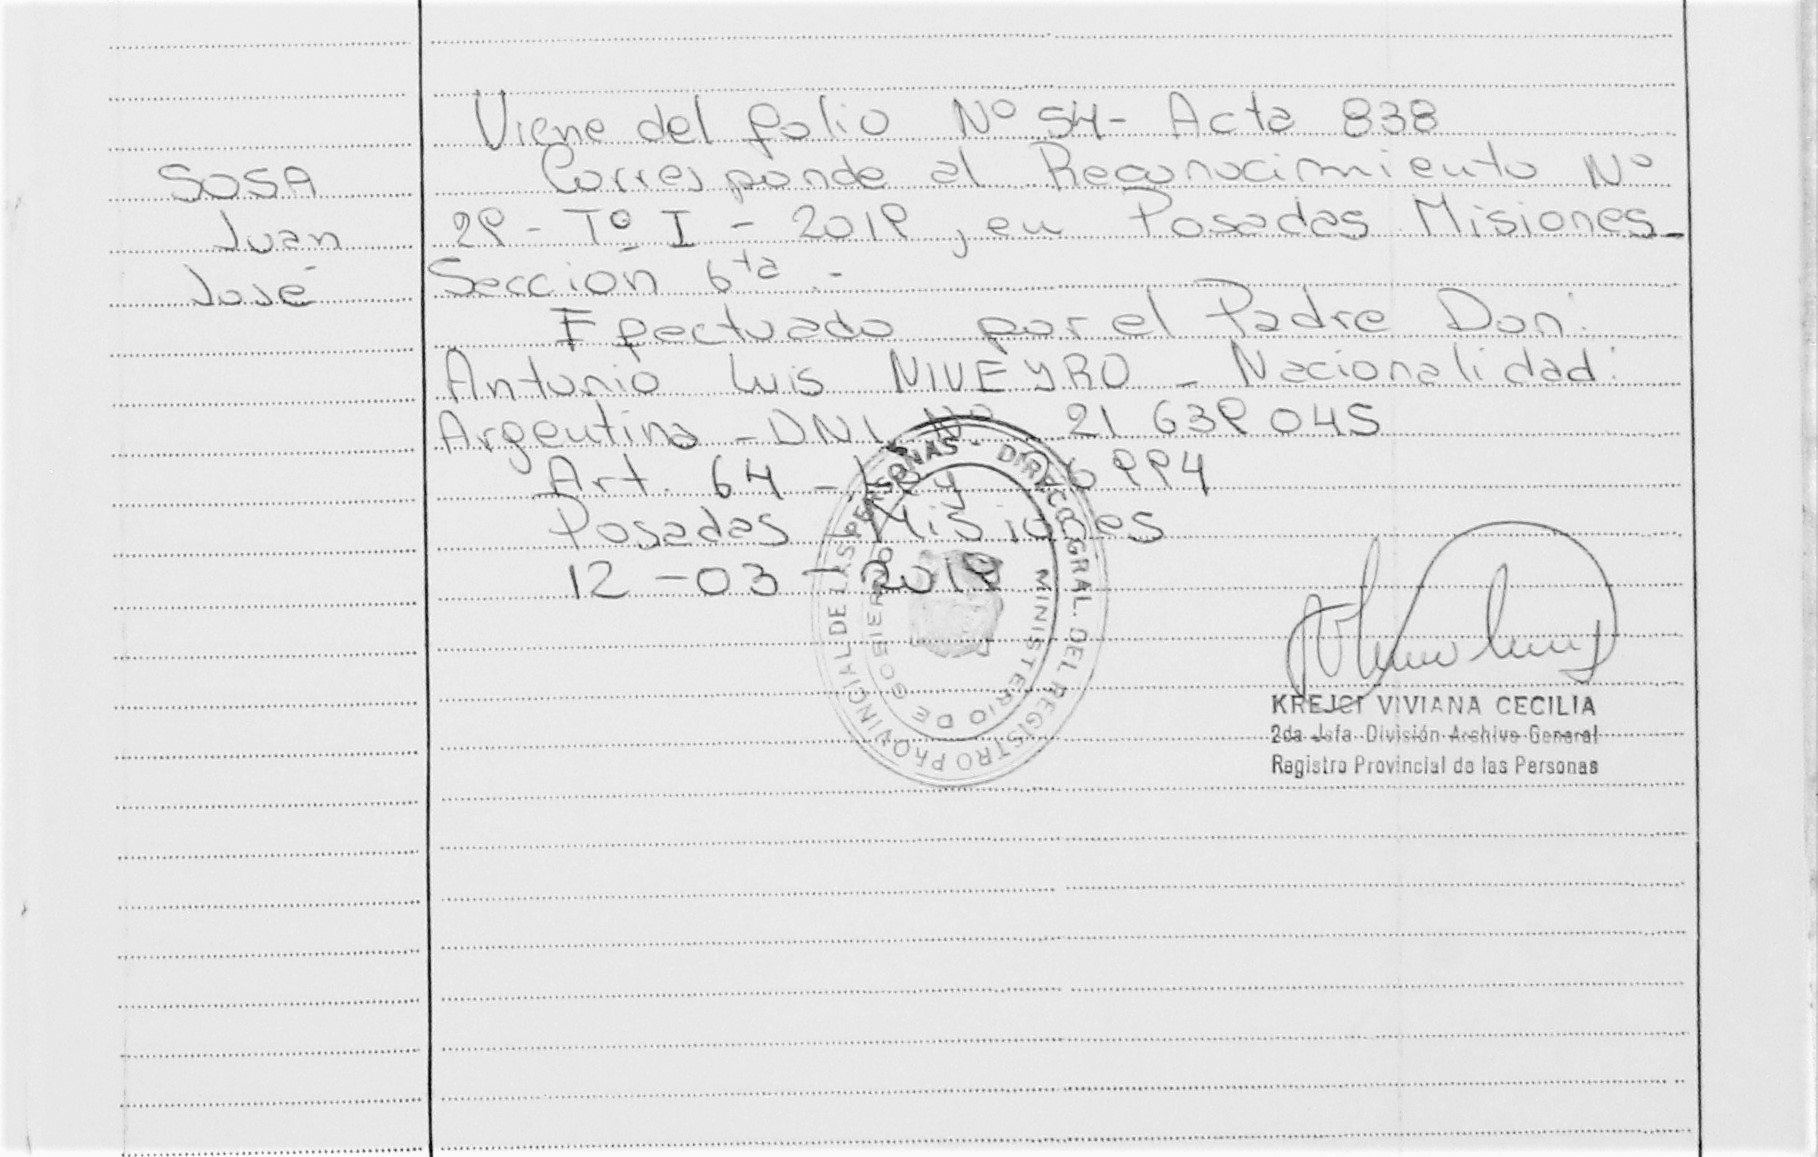 Viene del folio Nº 54- Acta 838
SOSA
Juan
José
Corresponde al Reconocimiento Nº
29 - Tº I - 2019, en Posadas Misiones-
Sección 6ta.-
Efectuado por el Padre Don:
Antonio Luis NIVEYRO - Nacionalidad:
Argentina - DNI Nº 21 639 045
Art. 64 - Ley 26994
Posadas - Misiones
12 -03 - 2019
DIRAC. GRAL. DEL REGISTRO PROVINCIAL DE LAS PERSONAS -
MINISTERIO DE GOBIERNO
KREJCI VIVIANA CECILIA
2da Jefa División Archivo General
Registro Provincial de las Personas